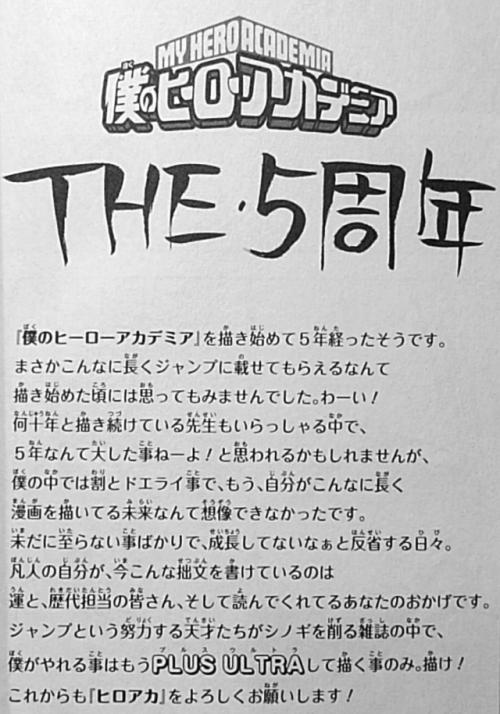 MY HERO ACADEMIA
僕のヒーローアカデミア
THE・5周年
『僕のヒーローアカデミア』を描き始めて5年経ったそうです。
まさかこんなに長くジャンプに載せてもらえるなんて
描き始めた頃には思ってもみませんでした。わーい！
何十年と描き続けている先生もいらっしゃる中で、
5年なんて大した事ねーよ！と思われるかもしれませんが、
僕の中では割とドエライ事で、もう、自分がこんなに長く
漫画を描いてる未来なんて想像できなかったです。
未だに至らない事ばかりで、成長してないなぁと反省する日々。
凡人の自分が、今こんな拙文を書けているのは
運と、歴代担当の皆さん、そして読んでくれてるあなたのおかげです。
ジャンプという努力する天才たちがシノギを削る雑誌の中で、
僕がやれる事はもうPLUS ULTRAして描く事のみ。描け！
これからも『ヒロアカ』をよろしくお願いします！